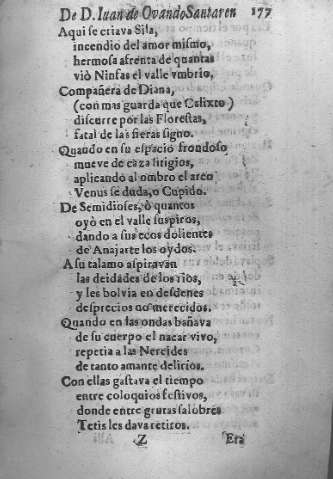 De D. Iuan de Ovando Santaren 177
Aqui se criava Sila,
incendio del amor mismo,
hermosa afrenta de quantas
viò Ninfas el valle vmbrio,
Compañera de Diana,
(con mas guarda que Calixto)
discurre por las Florestas,
fatal de las fieras signo.
Quando en su espacio frondoso
mueve de caza litigios,
aplicando al ombro el arco
Venus se duda, o Cupido.
De Semidioses, ò quantos
oyò en el valle suspiros,
dando a sus ecos dolientes
de Anajarte los oydos.
A su talamo aspiravan
las deidades de los rios,
y les bolvia en desdenes
desprecios no merecidos.
Quando en las ondas bañava
de su cuerpo el nacar vivo,
repetia a las Nereides
de tanto amante delirios.
Con ellas gastava el tiempo
entre coloquios festivos,
donde entre grutas salobres
Tetis les dava retiros.
Z Era